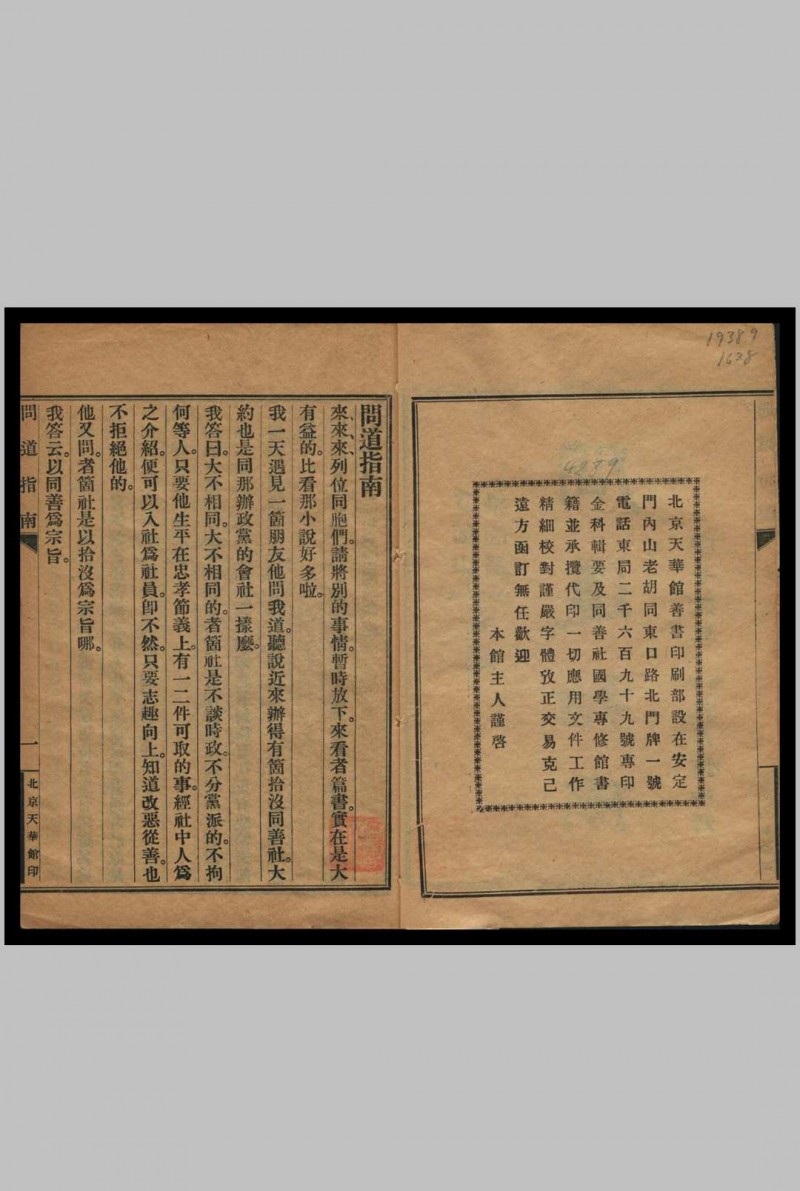 19389
1638
4279
北京天華館善書印刷部設在安定
門內山老胡同東口路北門牌一號
電話東局二千六百九十九號專印
金科輯要及同善社國學專修館書
籍並承攬代印一切應用文件工作
精細校對謹嚴字體攷正交易克己
遠方函訂無任歡迎
本館主人謹啓
問道指南
來、來、來、列位同胞們。請將別的事情。暫時放下。來看者篇書。實在是大
有益的。比看那小說好多啦。
我一天遇見一箇朋友他問我道。聽說近來辦得有箇拾沒同善社。大
約也是同那辦政黨的會社一㨾麽。
我答曰。大不相同。大不相同的。者箇社是不談時政。不分黨派的。不拘
何等人。只要他生平在忠孝節義上。有一二件可取的事。經社中人爲
之介紹。便可以入社爲社員。卽不然。只要志趣向上。知道改惡從善。也
不拒絕他的。
他又問。者箇社是以拾沒爲宗旨哪。
我答云。以同善爲宗旨。
問道指南
一
北京天華館印